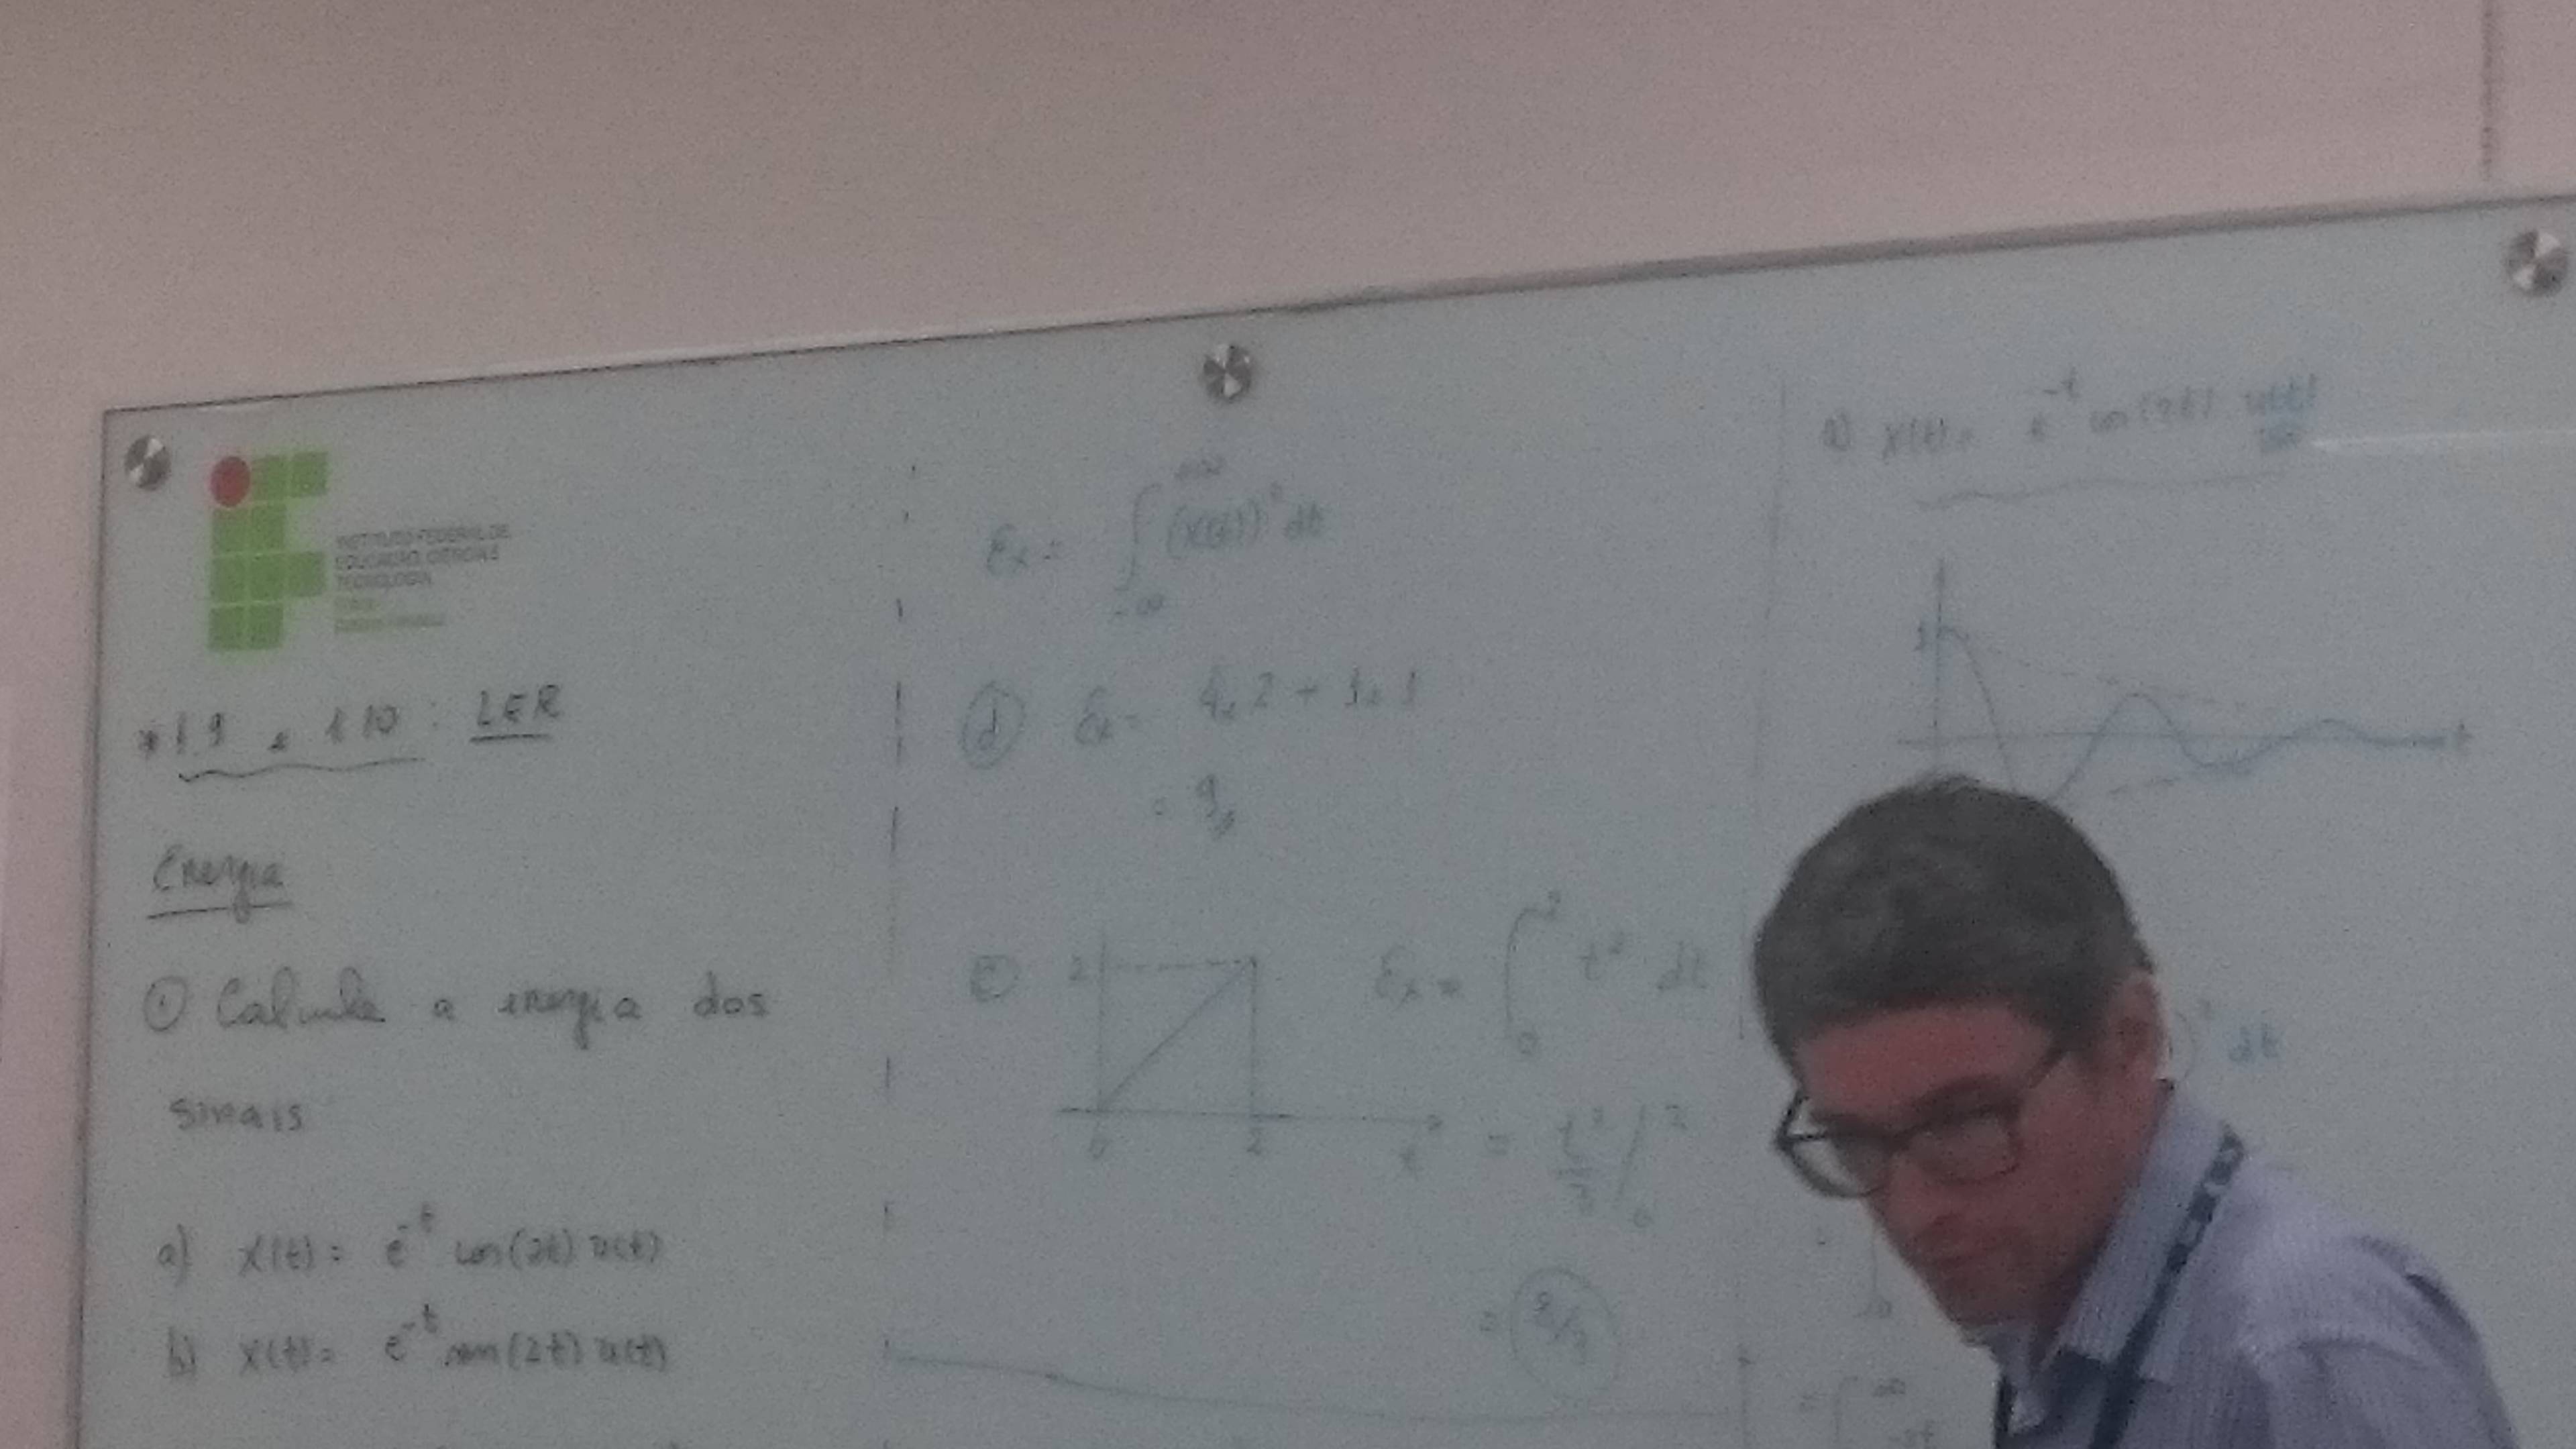 INSTITUTO FEDERAL DE
EDUCAÇÃO, CIÊNCIA E
TECNOLOGIA
* 1.9 e 1.10 : LER
Energia
① Calcule a energia dos
sinais
a) x(t) = e^-t cos(2t) u(t)
b) x(t) = e^-t sen(2t) u(t)
Ex = ∫ -∞ +∞ (x(t))² dt
ⓓ Ex = 4x2 + 1x1
= 9
2
0 2 t
Ex = ∫ 0 2 t² dt
= t³/3 | 0 2
= 8/3
a) x(t) = e^-t cos(2t) u(t)
1
t
)² dt
= ∫ ∞